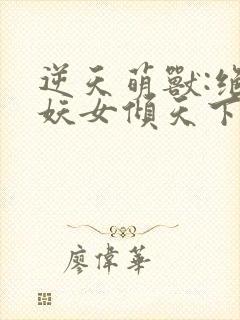 逆天萌獸:絕
妖女傾天下
廖偉華